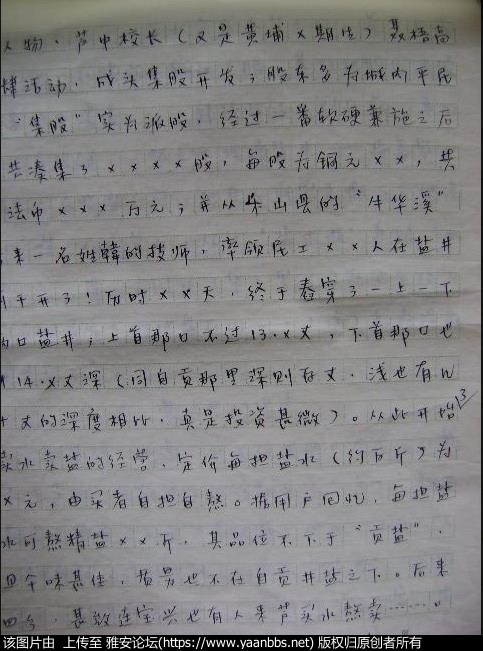 人物、芦中校长(又是黄埔×期生)聂梧高
活动，成头集股开发；股东多为城内平民
"集股"实为派股，经过一番软硬兼施之后
共凑集了××××股，每股为铜元××，共
法币×××万元；并从乐山县的"牛华溪"
来一名姓韩的技师，率领民工××人在盐井
干开了！历时××天，终于舂穿了一上一下
两口盐井；上首那口不过13.×丈，下首那口也
14.×丈深(同自贡那里深则百丈、浅也有几
十丈的深度相比，真是投资甚微)。从此开始
卖水卖盐的经营，定价每担盐水(约百斤)为
×元，由买者自担自熬。据用户回忆，每担盐
水可熬精盐××斤，其品位不下于"贡盐"，
回个味甚佳，质男也不在自贡井盐之下。后来
甚致连宝兴也有人来芦买水熬卖……。
13
该图片由 上传至 雅安论坛(https://www.yaanbbs.net) 版权归原创者所有